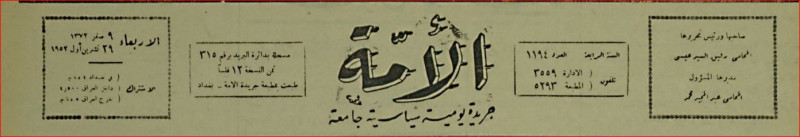 صاحبها ورئيس تحريرها
المحامي رفيق السيد عيسى
مديرها المسؤول
المحامي عبد المجيد محمد
السنة الرابعة العدد ١١٩٤
تلفون ( الادارة ٣٥٥٩
( المطبعة ٥٢٩٣
الأمة
جريدة يومية سياسية جامعة
مسجلة بدائرة البريد برقم ٣١٥
ثمن النسخة ١٢ فلساً
طبعت بمطبعة جريدة الامة - بغداد
الاربعاء
٩ صفر ١٣٧٢
٢٩ تشرين اول ١٩٥٢
الاشتراك
في بغداد
داخل العراق
خارج العراق